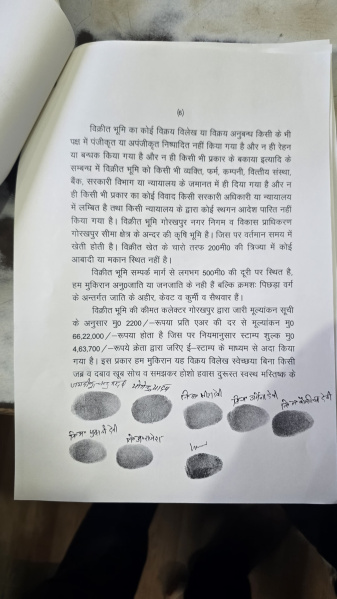 (6)
विक्रीत भूमि का कोई विक्रय विलेख या विक्रय अनुबन्ध किसी के भी
पक्ष में पंजीकृत या अपंजीकृत निष्पादित नहीं किया गया है और न ही रेहन
या बन्धक किया गया है और न ही किसी भी प्रकार के बकाया इत्यादि के
सम्बन्ध में विक्रीत भूमि को किसी भी व्यक्ति, फर्म, कम्पनी, वित्तीय संस्था,
बैंक, सरकारी विभाग या न्यायालय के जमानत में ही दिया गया है और न
ही किसी भी प्रकार का कोई विवाद किसी सरकारी अधिकारी या न्यायालय
में लम्बित है तथा किसी न्यायालय के द्वारा कोई स्थगन आदेश पारित नहीं
किया गया है। विक्रीत भूमि गोरखपुर नगर निगम व विकास प्राधिकरण
गोरखपुर सीमा क्षेत्र के अन्दर की कृषि भूमि है। जिस पर वर्तमान समय में
खेती होती है। विक्रीत खेत के चारो तरफ 200मी0 की त्रिज्या में कोई
आबादी या मकान स्थित नहीं है।
विक्रीत भूमि सम्पर्क मार्ग से लगभग 500मी0 की दूरी पर स्थित है,
हम मुकिरान अनु0जाति या जनजाति के नही हैं बल्कि क्रमशः पिछड़ा वर्ग
के अन्तर्गत जाति के अहीर, केवट व कुर्मी व सैथवार हैं।
विक्रीत भूमि की कीमत कलेक्टर गोरखपुर द्वारा जारी मूल्यांकन सूची
के अनुसार मु0 2200/-रूपया प्रति एअर की दर से मूल्यांकन मु0
66,22,000/-रूपया होता है जिस पर नियमानुसार स्टाम्प शुल्क मु0
4,63,700/-रूपये क्रेता द्वारा जरिए ई-स्टाम्प के माध्यम से अदा किया
गया है। इस प्रकार हम मुकिरान यह विक्रय विलेख स्वेच्छया बिना किसी
जब्र व दबाव खूब सोच व समझकर होशो हवास दुरूस्त स्वस्थ मस्तिष्क के